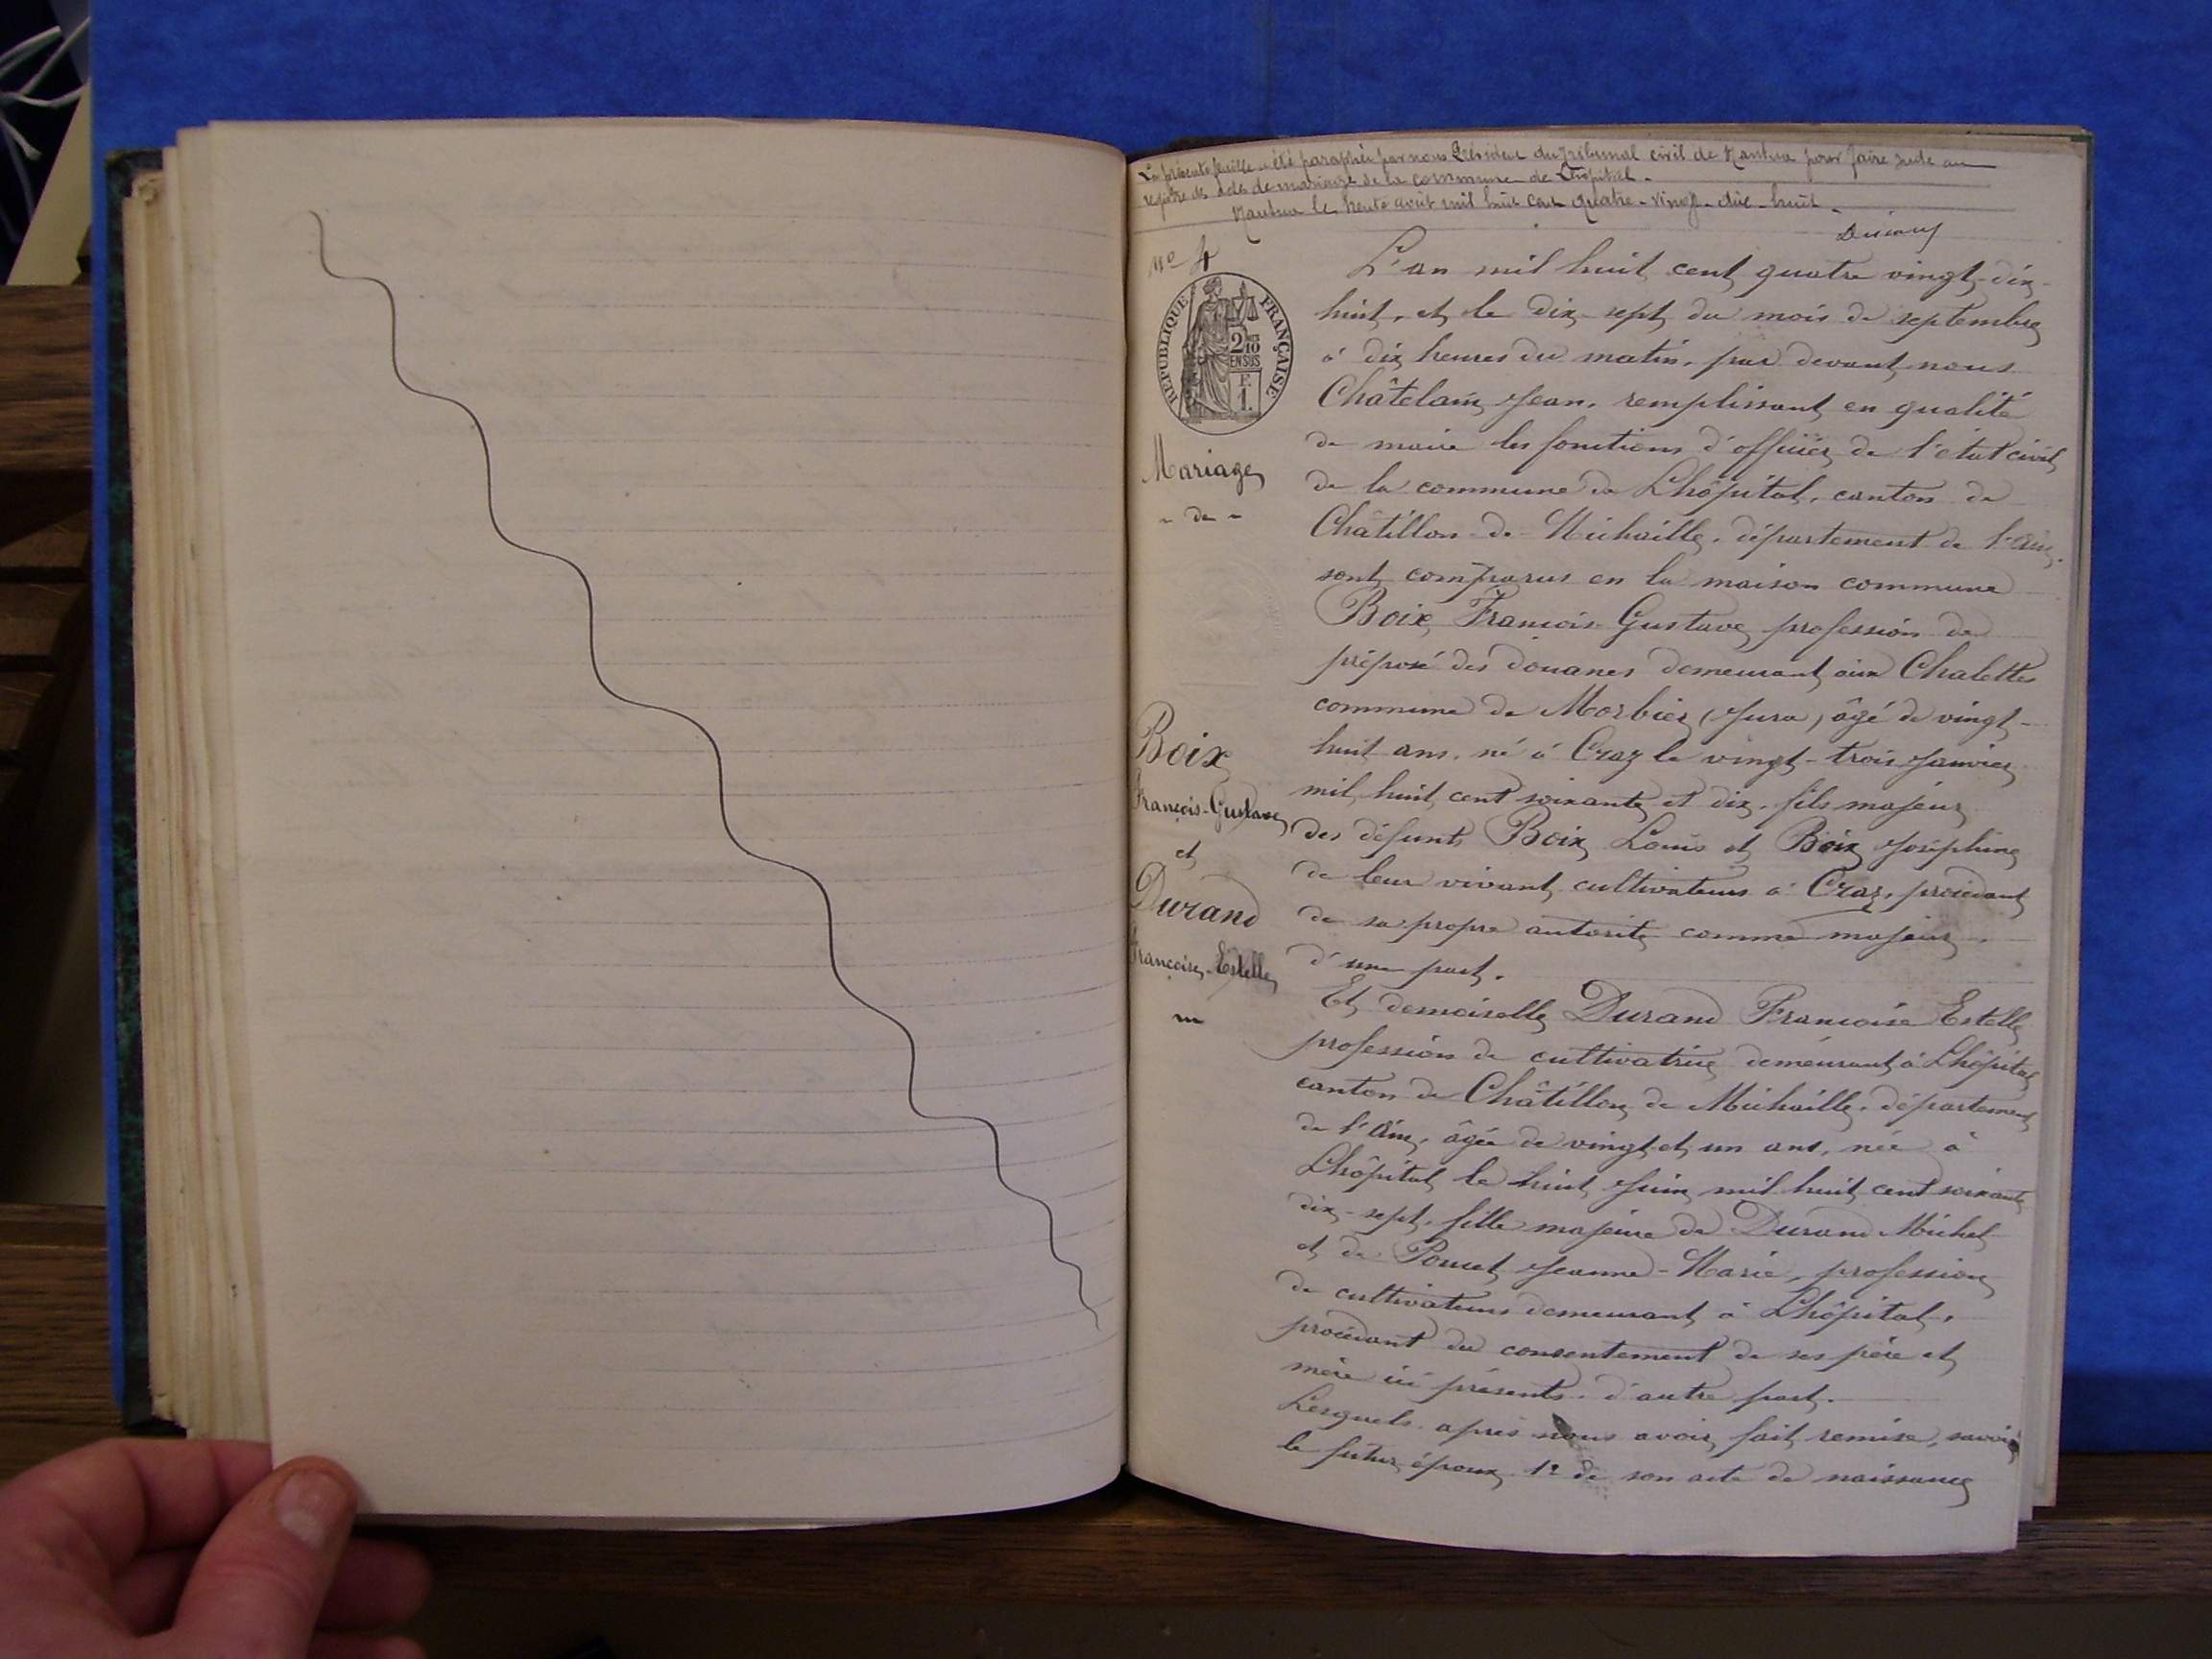 La présente feuille a été paraphée par nous Président du Tribunal civil de Nantua pour faire suite au
registre des actes de mariage de la commune de Lhôpital.
Nantua le trente août mil huit cent quatre-vingt-dix-huit
N° 4
RÉPUBLIQUE FRANÇAISE
2/10
EN SUS
F.
1.
Mariage
- de -
Boix
François-Gustave
et
Durand
Françoise-Estelle
L'an mil huit cent quatre vingt-dix-
huit, et le dix-sept du mois de septembre
à dix heures du matin, par devant nous
Châtelain Jean, remplissant en qualité
de maire les fonctions d'officier de l'état civil
de la commune de Lhôpital, canton de
Châtillon-de-Michaille, département de l'Ain,
sont comparus en la maison commune
Boix François-Gustave profession de
préposé des douanes demeurant aux Chalettes
commune de Morbier (Jura) âgé de vingt-
huit ans, né à Craz le vingt-trois Janvier
mil huit cent soixante et dix, fils majeur
des défunts Boix Louis et Boix Joséphine
de leur vivant cultivateurs à Craz, procédant
de sa propre autorité comme majeur,
d'une part.
Et demoiselle Durand Françoise Estelle
profession de cultivatrice demeurant à Lhôpital
canton de Châtillon de Michaille, département
de l'Ain, âgée de vingt et un ans, née à
Lhôpital le huit Juin mil huit cent soixante
dix-sept, fille majeure de Durand Michel
et de Poncet Jeanne-Marie, profession
de cultivateurs demeurant à Lhôpital,
procédant du consentement de ses père et
mère ici présents, d'autre part.
Lesquels après nous avoir fait remise, savoir
le futur époux 1° de son acte de naissance